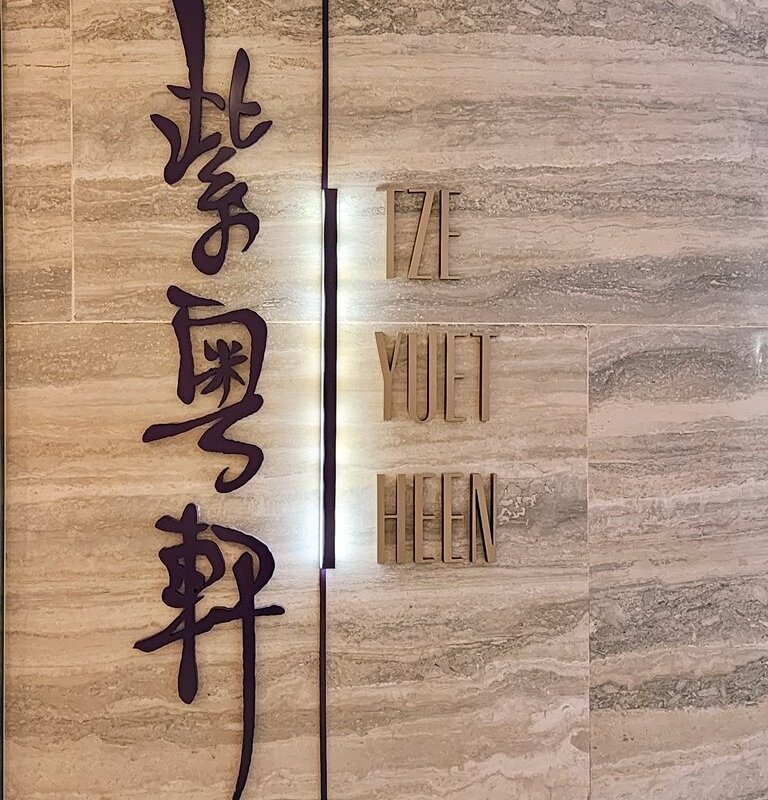 紫粵軒
TZE
YUET
HEEN